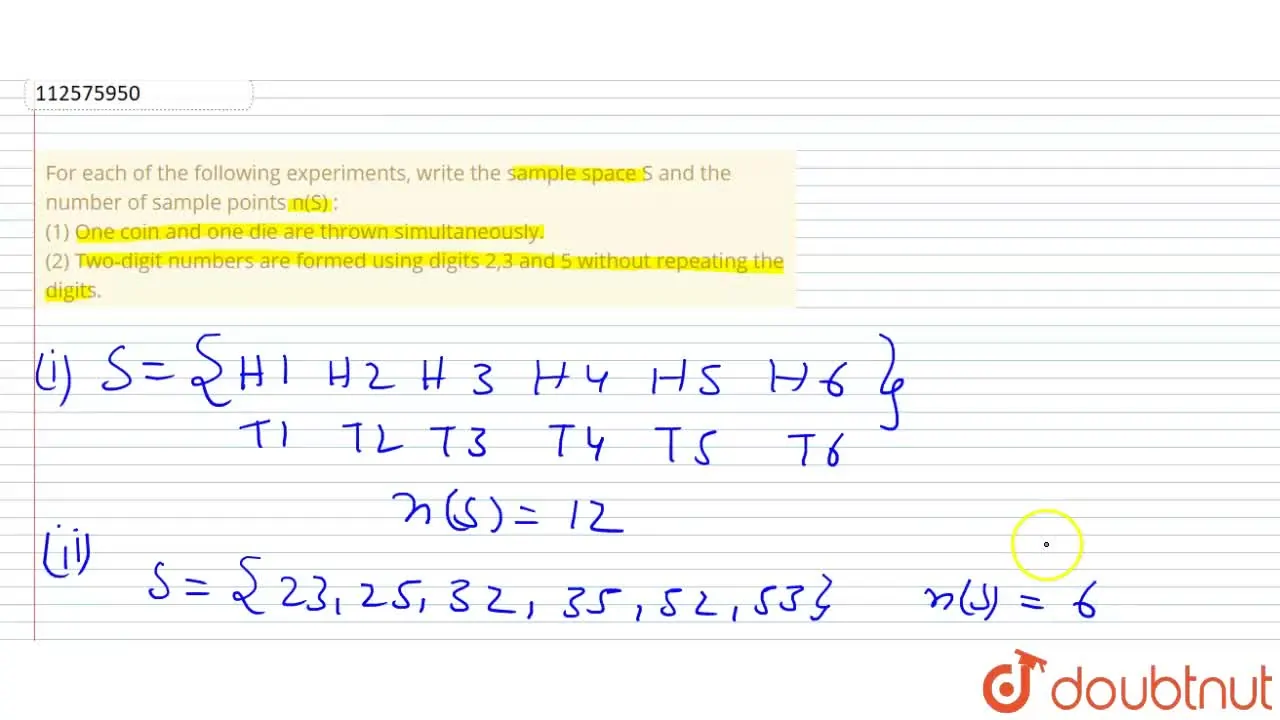 112575950
For each of the following experiments, write the sample space S and the
number of sample points n(S) :
(1) One coin and one die are thrown simultaneously.
(2) Two-digit numbers are formed using digits 2,3 and 5 without repeating the
digits.
(i) S = { H1 H2 H3 H4 H5 H6 }
T1 T2 T3 T4 T5 T6
n(S) = 12
(ii)
S = { 23, 25, 32, 35, 52, 53} n(S) = 6
doubtnut